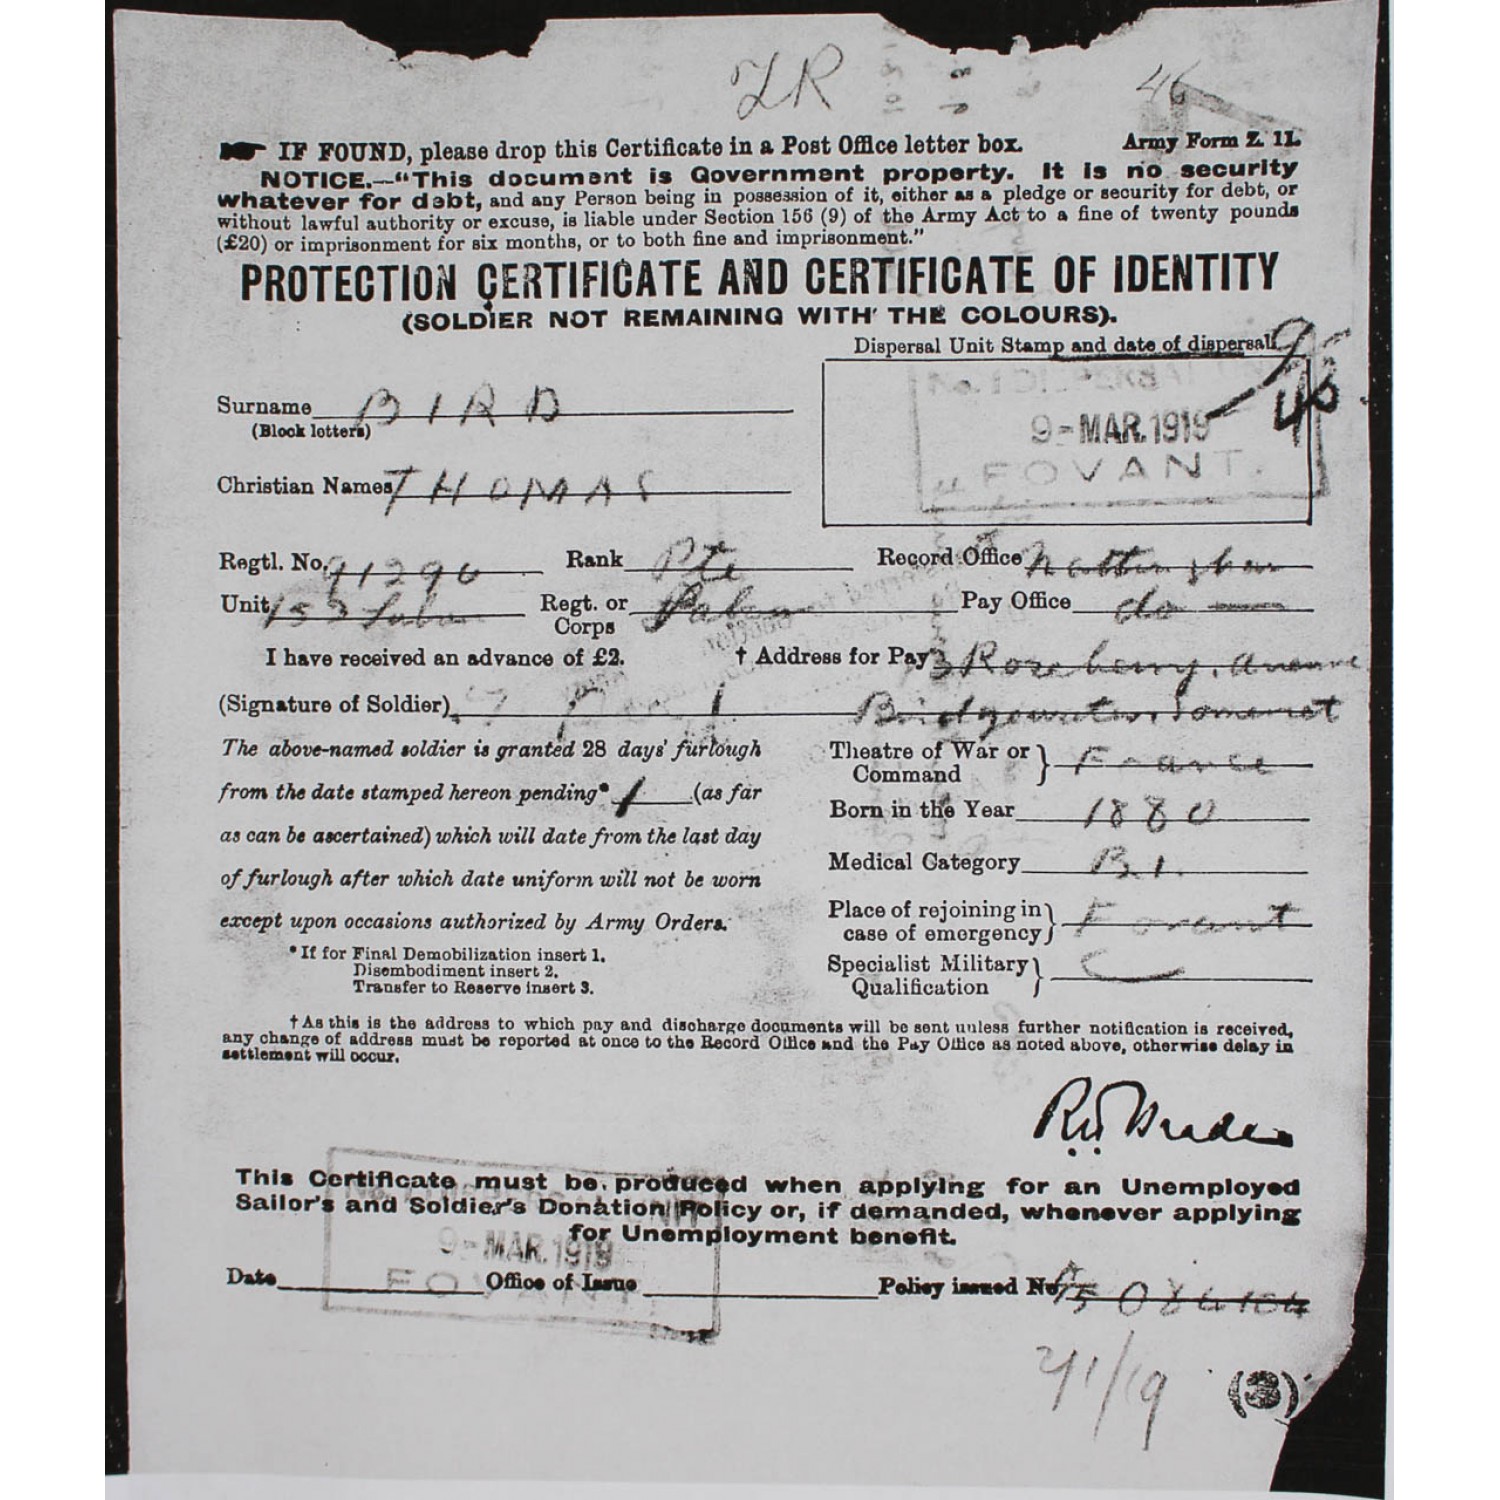 46
IF FOUND, please drop this Certificate in a Post Office letter box. Army Form Z. 11.
NOTICE.—"This document is Government property. It is no security
whatever for debt, and any Person being in possession of it, either as a pledge or security for debt, or
without lawful authority or excuse, is liable under Section 156 (9) of the Army Act to a fine of twenty pounds
(£20) or imprisonment for six months, or to both fine and imprisonment."
PROTECTION CERTIFICATE AND CERTIFICATE OF IDENTITY
(SOLDIER NOT REMAINING WITH THE COLOURS).
Dispersal Unit Stamp and date of dispersal
9-MAR.1919
FOVANT.
Surname BIRD
(Block letters)
Christian Names THOMAS
Regtl. No. 91296 Rank Pte Record Office Nottingham
Unit 153 Labour Regt. or Corps Labour Pay Office do
I have received an advance of £2. † Address for Pay 3 Rosebery Avenue
(Signature of Soldier) Bridgewater, Somerset
The above-named soldier is granted 28 days' furlough
from the date stamped hereon pending* 1 (as far
as can be ascertained) which will date from the last day
of furlough after which date uniform will not be worn
except upon occasions authorized by Army Orders.
*If for Final Demobilization insert 1.
Disembodiment insert 2.
Transfer to Reserve insert 3.
Theatre of War or Command France
Born in the Year 1880
Medical Category B1.
Place of rejoining in case of emergency Fovant
Specialist Military Qualification
†As this is the address to which pay and discharge documents will be sent unless further notification is received,
any change of address must be reported at once to the Record Office and the Pay Office as noted above, otherwise delay in
settlement will occur.
This Certificate must be produced when applying for an Unemployed
Sailor's and Soldier's Donation Policy or, if demanded, whenever applying
for Unemployment benefit.
9-MAR.1919
FOVANT.
Date Office of Issue Policy issued No.
(3)